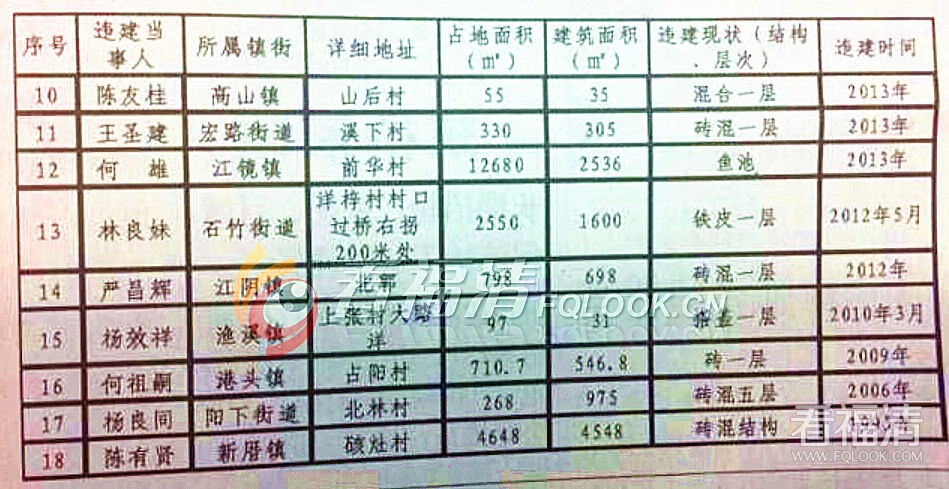 序号 违建当事人 所属镇街 详细地址 占地面积(㎡) 建筑面积(㎡) 违建现状(结构、层次) 违建时间
10 陈友桂 高山镇 山后村 55 35 混合一层 2013年
11 王圣建 宏路街道 溪下村 330 305 砖混一层 2013年
12 何雄 江镜镇 前华村 12680 2536 鱼池 2013年
13 林良妹 石竹街道 洋梓村村口过桥右拐200米处 2550 1600 铁皮一层 2012年5月
14 严昌辉 江阴镇 北郭 798 698 砖混一层 2012年
15 杨效祥 渔溪镇 上张村大路洋 97 31 搭盖一层 2010年3月
16 何祖嗣 港头镇 占阳村 710.7 546.8 砖一层 2009年
17 杨良同 阳下街道 北林村 268 975 砖混五层 2006年
18 陈有贤 新厝镇 硋灶村 4648 4548 砖混结构
看福清 FQLOOK.CN
看福清
WWW.FQLOOK.CN